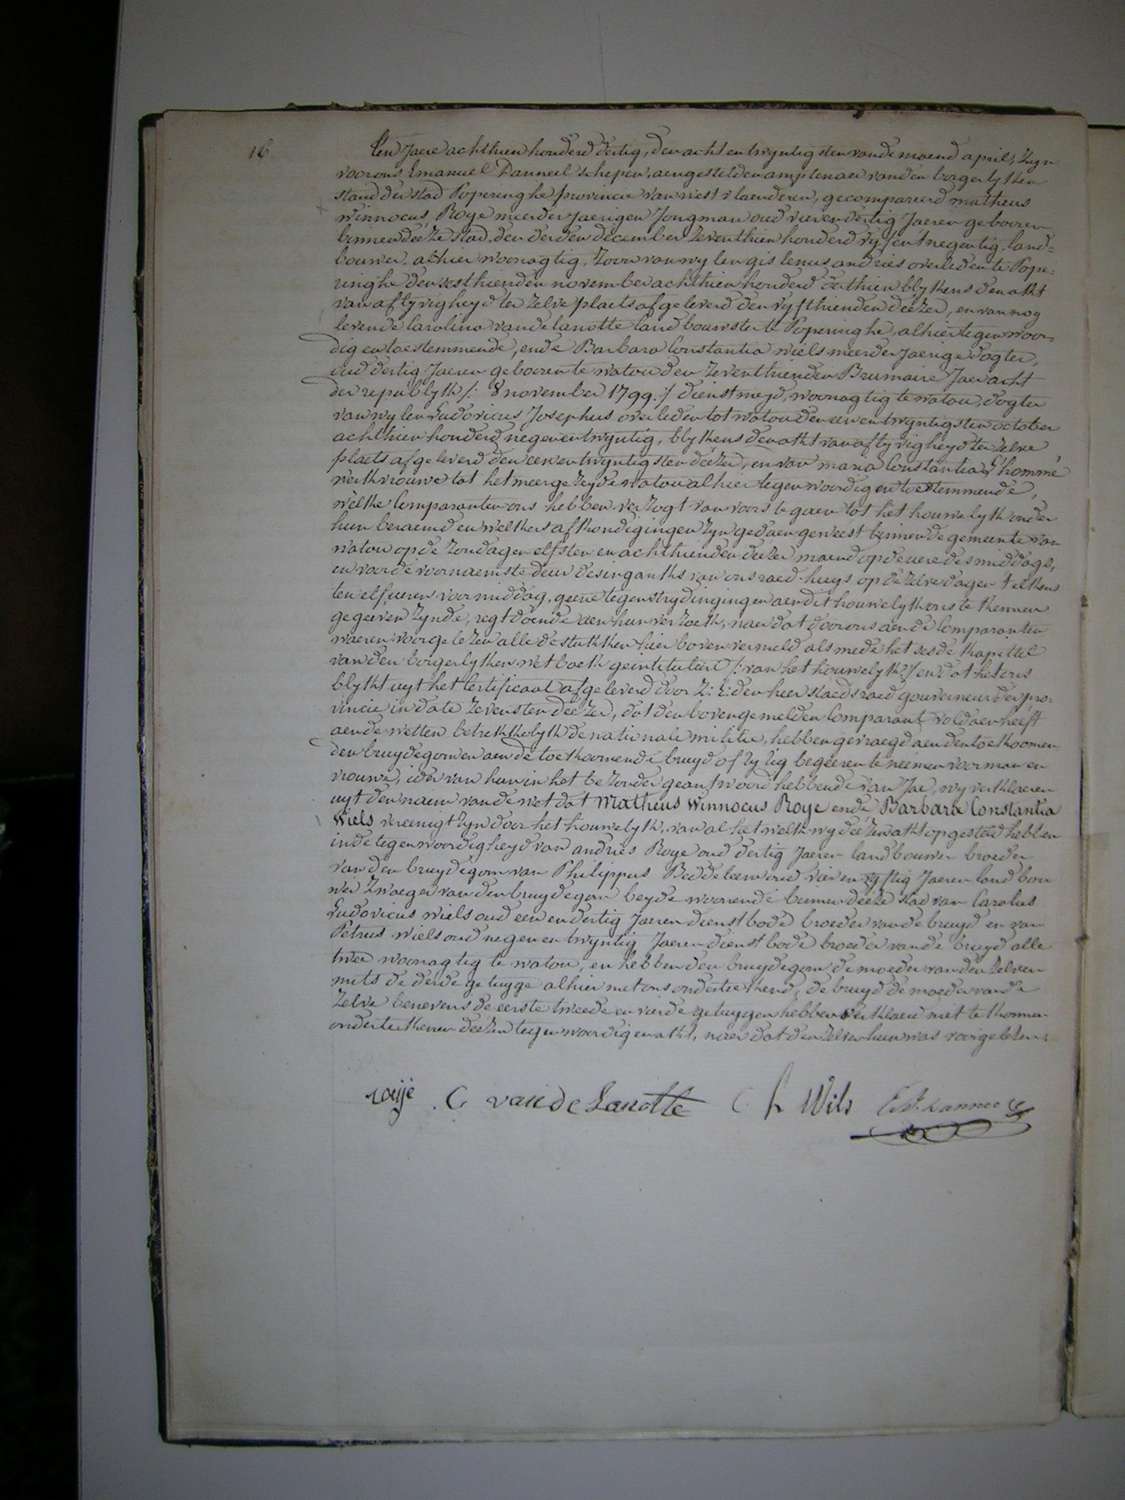 16
Ten Jaere achthien honderd dertig, den acht en twyntigsten van de maend april, Zyn
voor ons Emanuel Danneel schepen, aengestelden amptenaer van den borgerlyken
stand der stad Poperinghe provincie van west vlaenderen, gecompareerd matheus
winnocus Roye meerderjaerigen Jongman oud vier en dertig Jaeren gebooren
binnen deéze stad, den derden december zeventhien honderd vyf en tnegentig, land=
bouwer alhier woonagtig, Zoon van wylen gislenus andries overleden te Pope=
ringhe den sesthienden november achthien honderd derthien blykens den akt
van aflyvigheyd ter zelve plaets afgeleverd den vyfthienden deézer, en van nog
levende Carolina van de lanotte landbouwster te Poperinghe, alhier tegenwoor=
dig en toestemmende, ende Barbara Constantia wiels meerderjaerige dogter,
oud dertig Jaeren gebooren te watou den zeventhienden Brumaire Jaer acht
der republyk /: 8 november 1799 :/ dienstmeyd, woonagtig te watou, dogter
van wylen Ludovicus Josephus overleden tot watou den een en twyntigsten october
achthien honderd negen en twyntig, blykens den akt van aflyvigheyd ter zelve
plaets afgeleverd den een en twyntigsten deézer, en van maria Constantia L'homme
werkvrouwe tot het meergezeyde watou alhier tegenwoordig en toestemmende,
welke Comparanten ons hebben verzogt van voorts te gaen tot het houwelyk onder
hun beraemd en welkers afkondigingen zyn gedaen geweest binnen de gemeente van
watou op de zondagen elfsten en achthienden deézer maend op de uere des middags,
en voor de voornaemste deur des inganks van ons raed-huys op de zelve dagen telkens
ten elf ueren voormiddag, geene tegenstrydingingen aen dit houwelyk ons te kennen
gegeven zynde, regt doende aen hun verzoek, naer dat door ons aen de Comparanten
waeren voorgelezen alle de stukken hier boven vermeld als mede het sesde kapittel
van den borgerlyken wetboek geintituleert /: van het houwelyk :/ en dat het ons
blykt uyt het Certificaat afgeleverd door Z: E: den heer staeds raed gouverneur der pro=
vincie in date zevensten deézer, dat den bovengemelden Comparant voldaen heeft
aen de wetten betrekkelyk de nationale militie, hebben gevraegd aen den toekoomen=
den bruydegom en aen de toekoomende bruyd of zy zig begeéren te neémen voor man en
vrouwe, ider van hun in het bezonder geantwoord hebbende van Jae, wy verklaeren
uyt den naem van de wet dat Matheus Winnocus Roye ende Barbara Constantia
Wiels vereenigt zyn door het houwelyk, van al het welk wy deézen akt opgesteld hebben
in de tegenwoordigheyd van andries Roye oud dertig Jaeren landbouwer broeder
van den bruydegom van Philippus Beddeleem oud vier en vyftig Jaeren landbou=
wer zwaeger van den bruydegom beyde woonende binnen deéze stad van Carolus
Ludovicus wiels oud een en dertig Jaeren dienstbode broeder van de bruyd en van
Petrus wiels oud negen en twyntig Jaeren dienstbode broeder van de bruyd alle
twee woonagtig te watou, en hebben den bruydegom de moeder van den zelven
mits de derde getuyge alhier met ons onderteekend, de bruyd de moeder van de
zelve benevens de eerste tweede en vierde getuygen hebben verklaerd niet te konnen
onderteekenen deézen tegenwoordigen akt, naer dat den zelven hun was voorgelezen.
roije C van de Lanotte C L Wils Em. Danneel